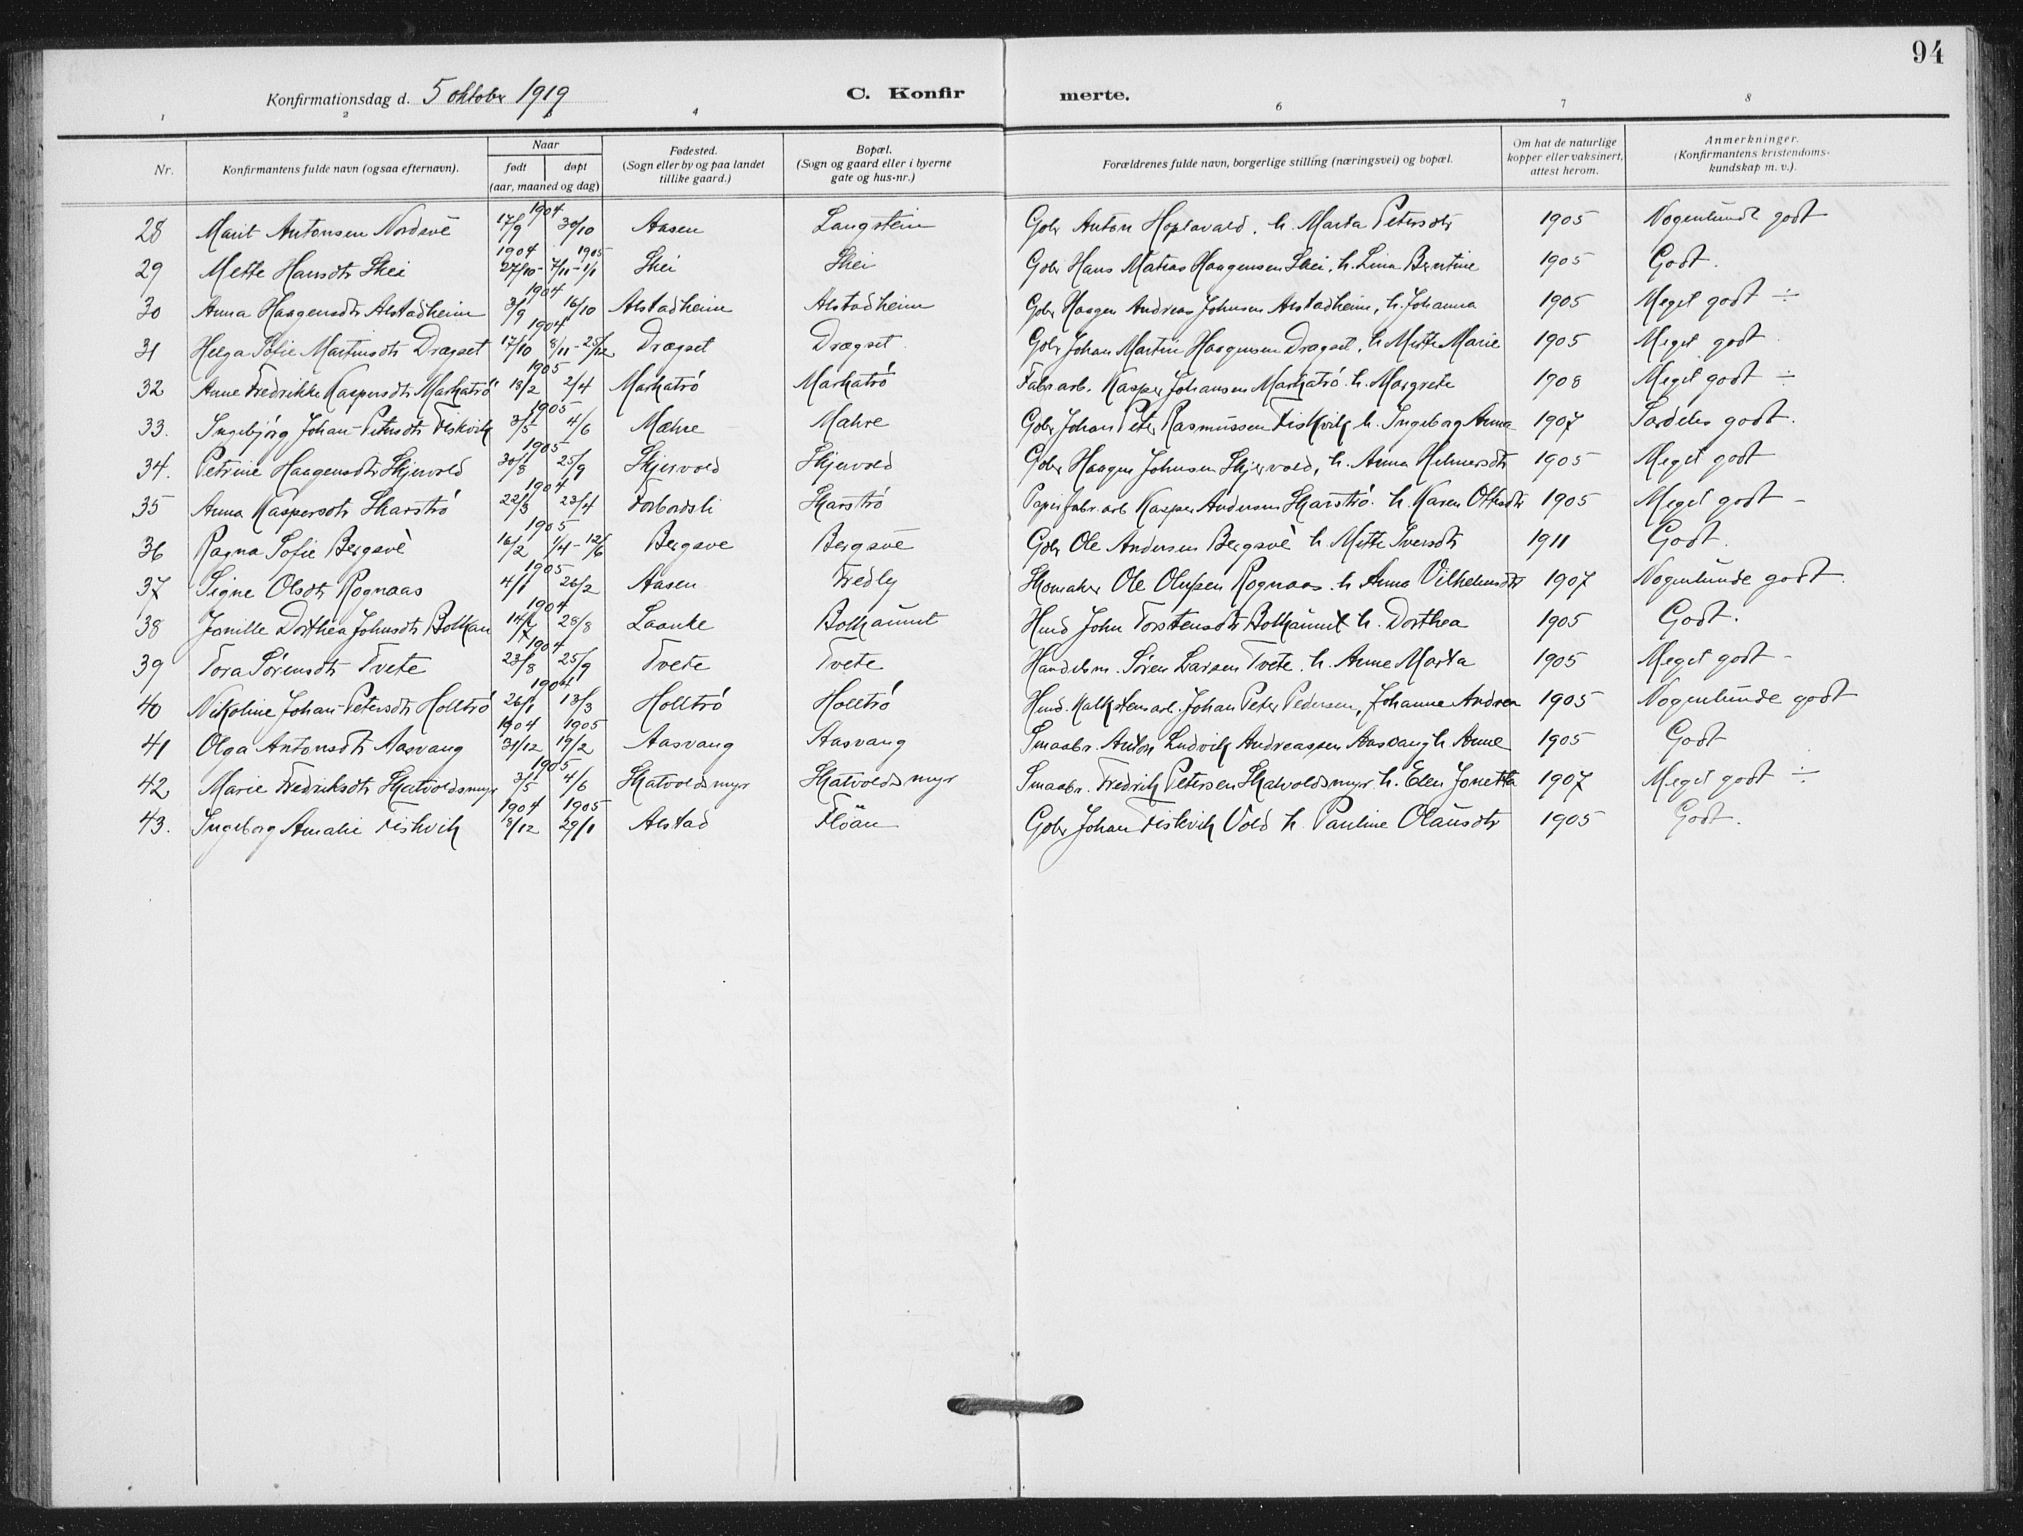 94
Konfirmationsdag d. 5 oktober 1919 C. Konfirmerte.
1 2 3 4 6 7 8
Nr. Konfirmantens fulde navn (ogsaa efternavn). Naar født døpt (aar, maaned og dag) Fødested. (Sogn eller by og paa landet tillike gaard.) Bopæl. (Sogn og gaard eller i byerne gate og hus-nr.) Forældrenes fulde navn, borgerlige stilling (næringsvei) og bopæl. Om hat de naturlige kopper eller vaksinert, attest herom. Anmerkninger. (Konfirmantens kristendomskundskap m. v.).
28 Marit Antonsen Nordsve 1904 17/9 30/10 Aasen Langstein Gbr Anton Hoplavald. h. Marta Petersdtr 1905 Nogenlunde godt
29 Mette Hansdtr Skei 1904 27/10 - 7/11 - 1905 1/1 Skei Skei Gbr Hans Matias Haagensen Skei, h. Lina Bertine 1905 Godt.
30 Anna Haagensdtr Alstadheim 1904 3/9 16/10 Alstadheim Alstadheim Gbr Haagen Andreas Johnsen Alstadheim, h. Johanna 1905 Meget godt ÷
31 Helga Sofie Martinsdtr Drægset 1904 17/10 8/11 - 25/12 Drægset Drægset Gbr Johan Martin Haagensen Drægset, h. Mette Marie 1905 Meget godt
32 Anne Fredrikke Kaspersdtr Markatrø 1905 18/2 2/4 Markatrø Markatrø Fabr arb. Kasper Johansen Markatrø h. Margrete 1908 Meget godt ÷
33. Ingebjørg Johan-Petersdtr Fiskvik 1905 3/5 4/6 Mæhre Mæhre Gbr Johan Peter Rasmussen Fiskvik h. Ingeborg Anna 1907 Særdeles godt.
34. Petrine Haagensdtr Skjervold 1905 30/8 25/9 Skjervold Skjervold Gbr Haagen Johnsen Skjervold, h. Anna Hilmersdtr 1905 Meget godt
35 Anna Kaspersdtr Skarstrø 1904 22/3 23/4 Forbordsli Skarstrø Papirfabr. arb Kasper Andersen Skarstrø. h. Karen Ottesdtr 1905 Meget godt -
36 Ragna Sofie Bergsve 1905 16/2 1/4 - 12/6 Bergsve Bergsve Gbr Ole Andersen Bergsve h. Mette Iversdtr 1911 Godt.
37 Signe Olsdtr Rognaas 1905 4/1 26/2 Aasen Fredly Skomaker Ole Olufsen Rognaas. h. Anna Vilhelmsdtr 1907 Nogenlunde godt.
38 Jonille Dorthea Johnsdtr Bolkan 1904 14/7 28/8 Laanke Bolkaunet Husd John Torstensdtr Bolkaunet h. Dorthea 1905 Godt.
39 Tora Sørensdtr Tvete 1904 23/8 25/9 Tvete Tvete Handelsm. Søren Larsen Tvete. h. Anne Marta 1905 Meget godt -
40 Nikoline Johan-Petersdtr Holltrø 1904 26/1 13/3 Holltrø Holltrø Husd. Kalkstensarb. Johan Peter Pedersen, Johanne Andrea 1905 Nogenlunde godt
41 Olga Antonsdtr Aasvang 1904 31/12 1905 19/2 Aasvang Aasvang Smaabr. Anton Ludvik Andreassen Aasvang h. Anne 1905 Godt
42 Marie Fredriksdtr Skatvoldsmyr 1905 3/5 4/6 Skatvoldsmyr Skatvoldsmyr Smaabr. Fredrik Petersen Skatvoldsmyr h. Elen Jonetta 1907 Meget godt ÷
43. Ingeborg Amalie Fiskvik 1904 8/12 1905 29/1 Alstad Fløan Gbr Johan Fiskvik Vold h. Pauline Olausdtr 1905 Godt.